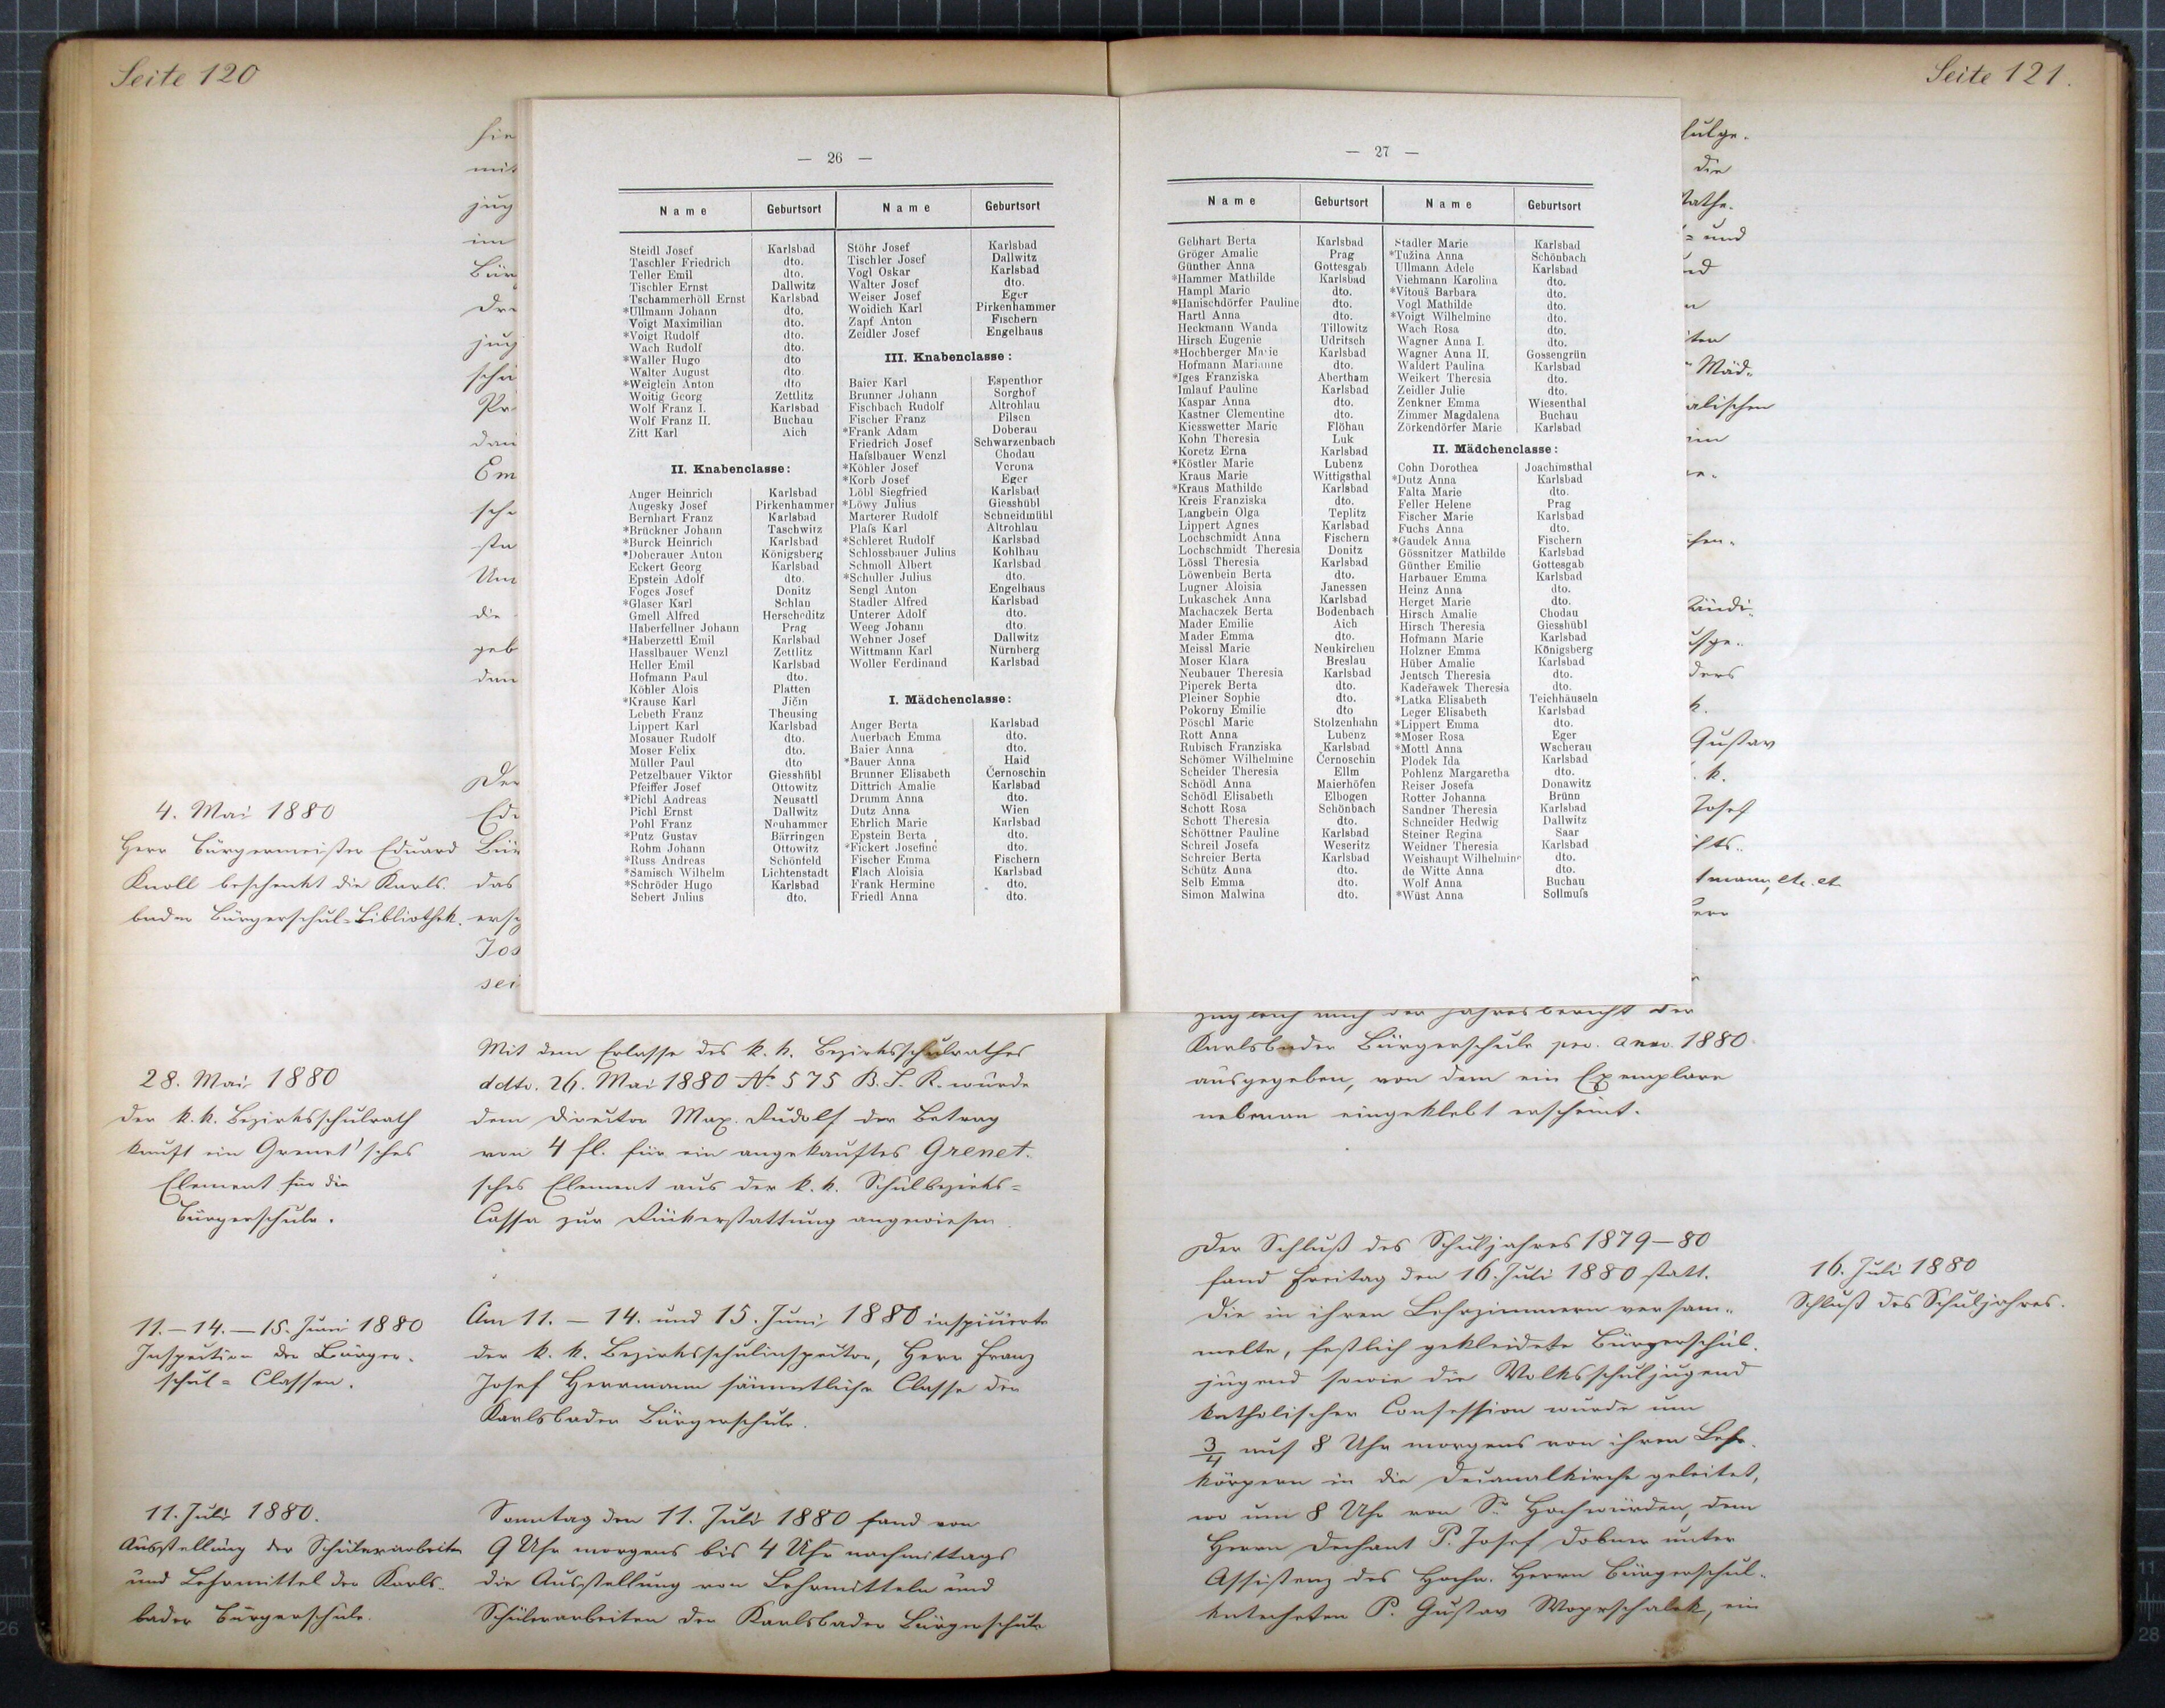 Seite 120
Seite 121.
4. Mai 1880
Herr Bürgermeister Eduard
Knoll beschenkt die Karls-
bader Bürgerschul-Bibliothek.
28. Mai 1880
Der k. k. Bezirksschulrath
kauft ein Grenet'sches
Element für die
Bürgerschule.
11. – 14. – 15. Juni 1880
Inspection der Bürger-
schul = Classen.
11. Juli 1880.
Ausstellung der Schülerarbeiten
und Lehrmittel der Karls-
bader Bürgerschule.
— 26 —
Name Geburtsort Name Geburtsort
Steidl Josef Karlsbad
Taschler Friedrich dto.
Teller Emil dto.
Tischler Ernst Dallwitz
Tschammerhöll Ernst Karlsbad
*Ullmann Johann dto.
Voigt Maximilian dto.
*Voigt Rudolf dto.
Wach Rudolf dto.
*Waller Hugo dto
Walter August dto
*Weiglein Anton dto
Woitig Georg Zettlitz
Wolf Franz I. Karlsbad
Wolf Franz II. Buchau
Zitt Karl Aich
II. Knabenclasse:
Anger Heinrich Karlsbad
Augesky Josef Pirkenhammer
Bernhart Franz Karlsbad
*Brückner Johann Taschwitz
*Burck Heinrich Karlsbad
*Doberauer Anton Königsberg
Eckert Georg Karlsbad
Epstein Adolf dto.
Föges Josef Donitz
*Glaser Karl Schlau
Gmell Alfred Herscheditz
Haberfellner Johann Prag
*Haberzettl Emil Karlsbad
Hasslbauer Wenzl Zettlitz
Heller Emil Karlsbad
Hofmann Paul dto.
Köhler Alois Platten
*Krause Karl Jičin
Lebeth Franz Theusing
Lippert Karl Karlsbad
Mosauer Rudolf dto.
Moser Felix dto.
Müller Paul dto
Petzelbauer Viktor Giesshübl
Pfeiffer Josef Ottowitz
*Pichl Andreas Neusattl
Pichl Ernst Dallwitz
Pohl Franz Neuhammer
*Putz Gustav Bärringen
Rohm Johann Ottowitz
*Russ Andreas Schönfeld
*Samisch Wilhelm Lichtenstadt
*Schröder Hugo Karlsbad
Sebert Julius dto.
Stöhr Josef Karlsbad
Tischler Josef Dallwitz
Vogl Oskar Karlsbad
Walter Josef dto.
Weiser Josef Eger
Woidich Karl Pirkenhammer
Zapf Anton Fischern
Zeidler Josef Engelhaus
III. Knabenclasse:
Baier Karl Espenthor
Brunner Johann Sorghof
Fischbach Rudolf Altrohlau
Fischer Franz Pilsen
*Frank Adam Doberau
Friedrich Josef Schwarzenbach
Haſslbauer Wenzl Chodau
*Köhler Josef Verona
*Korb Josef Eger
Löbl Siegfried Karlsbad
*Löwy Julius Giesshübl
Marterer Rudolf Schneidmühl
Plaſs Karl Altrohlau
*Schleret Rudolf Karlsbad
Schlossbauer Julius Kohlhau
Schmoll Albert Karlsbad
*Schuller Julius dto.
Sengl Anton Engelhaus
Stadler Alfred Karlsbad
Unterer Adolf dto.
Weeg Johann dto.
Wehner Josef Dallwitz
Wittmann Karl Nürnberg
Woller Ferdinand Karlsbad
I. Mädchenclasse:
Anger Berta Karlsbad
Auerbach Emma dto.
Baier Anna dto.
*Bauer Anna Haid
Brunner Elisabeth Černoschin
Dittrich Amalie Karlsbad
Drumm Anna dto.
Dutz Anna Wien
Ehrlich Marie Karlsbad
Epstein Berta dto.
*Fickert Josefine dto.
Fischer Emma Fischern
Flach Aloisia Karlsbad
Frank Hermine dto.
Friedl Anna dto.
— 27 —
Name Geburtsort Name Geburtsort
Gebhart Berta Karlsbad
Gröger Amalie Prag
Günther Anna Gottesgab
*Hammer Mathilde Karlsbad
Hampl Marie dto.
*Hanischdörfer Pauline dto.
Hartl Anna dto.
Heckmann Wanda Tillowitz
Hirsch Eugenie Udritsch
*Hochberger Marie Karlsbad
Hofmann Marianne dto.
*Iges Franziska Abertham
Imlauf Pauline Karlsbad
Kaspar Anna dto.
Kastner Clementine dto.
Kiesswetter Marie Flöhau
Kohn Theresia Luk
Koretz Erna Karlsbad
*Köstler Marie Lubenz
Kraus Marie Wittigsthal
*Kraus Mathilde Karlsbad
Kreis Franziska dto.
Langbein Olga Teplitz
Lippert Agnes Karlsbad
Lochschmidt Anna Fischern
Lochschmidt Theresia Donitz
Lössl Theresia Karlsbad
Löwenbein Berta dto.
Lugner Aloisia Janessen
Lukaschek Anna Karlsbad
Machaczek Berta Bodenbach
Mader Emilie Aich
Mader Emma dto.
Meissl Marie Neukirchen
Moser Klara Breslau
Neubauer Theresia Karlsbad
Piperek Berta dto.
Pleiner Sophie dto.
Pokorny Emilie dto
Pöschl Marie Stolzenhahn
Rott Anna Lubenz
Rubisch Franziska Karlsbad
Schömer Wilhelmine Černoschin
Scheider Theresia Ellm
Schödl Anna Maierhöfen
Schödl Elisabeth Elbogen
Schott Rosa Schönbach
Schott Theresia dto.
Schöttner Pauline Karlsbad
Schreil Josefa Weseritz
Schreier Berta Karlsbad
Schütz Anna dto.
Selb Emma dto.
Simon Malwina dto.
Stadler Marie Karlsbad
*Tužina Anna Schönbach
Ullmann Adele Karlsbad
Viehmann Karolina dto.
*Vitouš Barbara dto.
Vogl Mathilde dto.
*Voigt Wilhelmine dto.
Wach Rosa dto.
Wagner Anna I. dto.
Wagner Anna II. Gossengrün
Waldert Paulina Karlsbad
Weikert Theresia dto.
Zeidler Julie dto.
Zenkner Emma Wiesenthal
Zimmer Magdalena Buchau
Zörkendörfer Marie Karlsbad
II. Mädchenclasse:
Cohn Dorothea Joachimsthal
*Dutz Anna Karlsbad
Falta Marie dto.
Feller Helene Prag
Fischer Marie Karlsbad
Fuchs Anna dto.
*Gaudek Anna Fischern
Gössnitzer Mathilde Karlsbad
Günther Emilie Gottesgab
Harbauer Emma Karlsbad
Heinz Anna dto.
Herget Marie dto.
Hirsch Amalie Chodau
Hirsch Theresia Giesshübl
Hofmann Marie Karlsbad
Holzner Emma Königsberg
Hüber Amalie Karlsbad
Jentsch Theresia dto.
Kadeřawek Theresia dto.
*Latka Elisabeth Teichhäuseln
Leger Elisabeth Karlsbad
*Lippert Emma dto.
*Moser Rosa Eger
*Mottl Anna Wscherau
Plodek Ida Karlsbad
Pohlenz Margaretha dto.
Reiser Josefa Donawitz
Rotter Johanna Brünn
Sandner Theresia Karlsbad
Schneider Hedwig Dallwitz
Steiner Regina Saar
Weidner Theresia Karlsbad
Weishaupt Wilhelmine dto.
de Witte Anna dto.
Wolf Anna Buchau
*Wüst Anna Sollmuſs
Mit dem Erlasse des k. k. Bezirksschulrathes
ddto. 26. Mai 1880 No 575 B. S. R. wurde
dem Director Max. Rudolf der Betrag
von 4 fl. für ein angekauftes Grenet-
sches Element aus der k. k. Schulbezirks=
Cassa zur Rückerstattung angewiesen.
Am 11. – 14. und 15. Juni 1880 inspicierte
der k. k. Bezirksschulinspector, Herr Franz
Josef Herrmann sämmtliche Classe der
Karlsbader Bürgerschule.
Sonntag den 11. Juli 1880 fand von
9 Uhr morgens bis 4 Uhr nachmittags
die Ausstellung von Lehrmitteln und
Schülerarbeiten der Karlsbader Bürgerschule
zugleich auch der Jahresbericht der
Karlsbader Bürgerschule pro anno 1880
ausgegeben, von dem ein Exemplare
nebenan eingeklebt erscheint.
Der Schluß des Schuljahres 1879–80
fand Freitag den 16. Juli 1880 statt.
Die in ihren Lehrzimmern versam-
melte, festlich gekleidete Bürgerschul-
jugend sowie die Volksschuljugend
katholischer Confession wurde um
3/4 auf 8 Uhr morgens von ihren Lehr-
körpern in die Decanalkirche geleitet,
wo um 8 Uhr von Sr. Hochwürden, dem
Herrn Dechant P. Josef Dobner unter
Assistenz des Hochw. Herrn Bürgerschul-
katecheten P. Gustav Woprschalek, ein
16. Juli 1880
Schluß des Schuljahres.